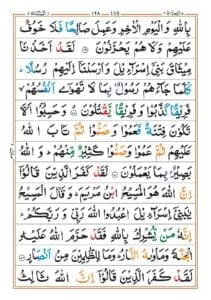 بِاللّٰهِ وَالْيَوْمِ الْاٰخِرِ وَعَمِلَ صَالِحًا فَلَا خَوْفٌ
عَلَيْهِمْ وَلَا هُمْ يَحْزَنُوْنَ لَقَدْ اَخَذْنَا
مِيْثَاقَ بَنِيْٓ اِسْرَآءِيْلَ وَاَرْسَلْنَآ اِلَيْهِمْ رُسُلًا
كُلَّمَا جَآءَهُمْ رَسُوْلٌۢ بِمَا لَا تَهْوٰٓى اَنْفُسُهُمْ
فَرِيْقًا كَذَّبُوْا وَفَرِيْقًا يَّقْتُلُوْنَ وَحَسِبُوْٓا
اَلَّا تَكُوْنَ فِتْنَةٌ فَعَمُوْا وَصَمُّوْا ثُمَّ تَابَ اللّٰهُ
عَلَيْهِمْ ثُمَّ عَمُوْا وَصَمُّوْا كَثِيْرٌ مِّنْهُمْ وَاللّٰهُ
بَصِيْرٌۢ بِمَا يَعْمَلُوْنَ لَقَدْ كَفَرَ الَّذِيْنَ قَالُوْٓا
اِنَّ اللّٰهَ هُوَ الْمَسِيْحُ ابْنُ مَرْيَمَ وَقَالَ الْمَسِيْحُ
يٰبَنِيْٓ اِسْرَآءِيْلَ اعْبُدُوا اللّٰهَ رَبِّيْ وَرَبَّكُمْ
اِنَّهٗ مَنْ يُّشْرِكْ بِاللّٰهِ فَقَدْ حَرَّمَ اللّٰهُ عَلَيْهِ
الْجَنَّةَ وَمَاْوٰىهُ النَّارُ وَمَا لِلظّٰلِمِيْنَ مِنْ اَنْصَارٍ
لَقَدْ كَفَرَ الَّذِيْنَ قَالُوْٓا اِنَّ اللّٰهَ ثَالِثُ